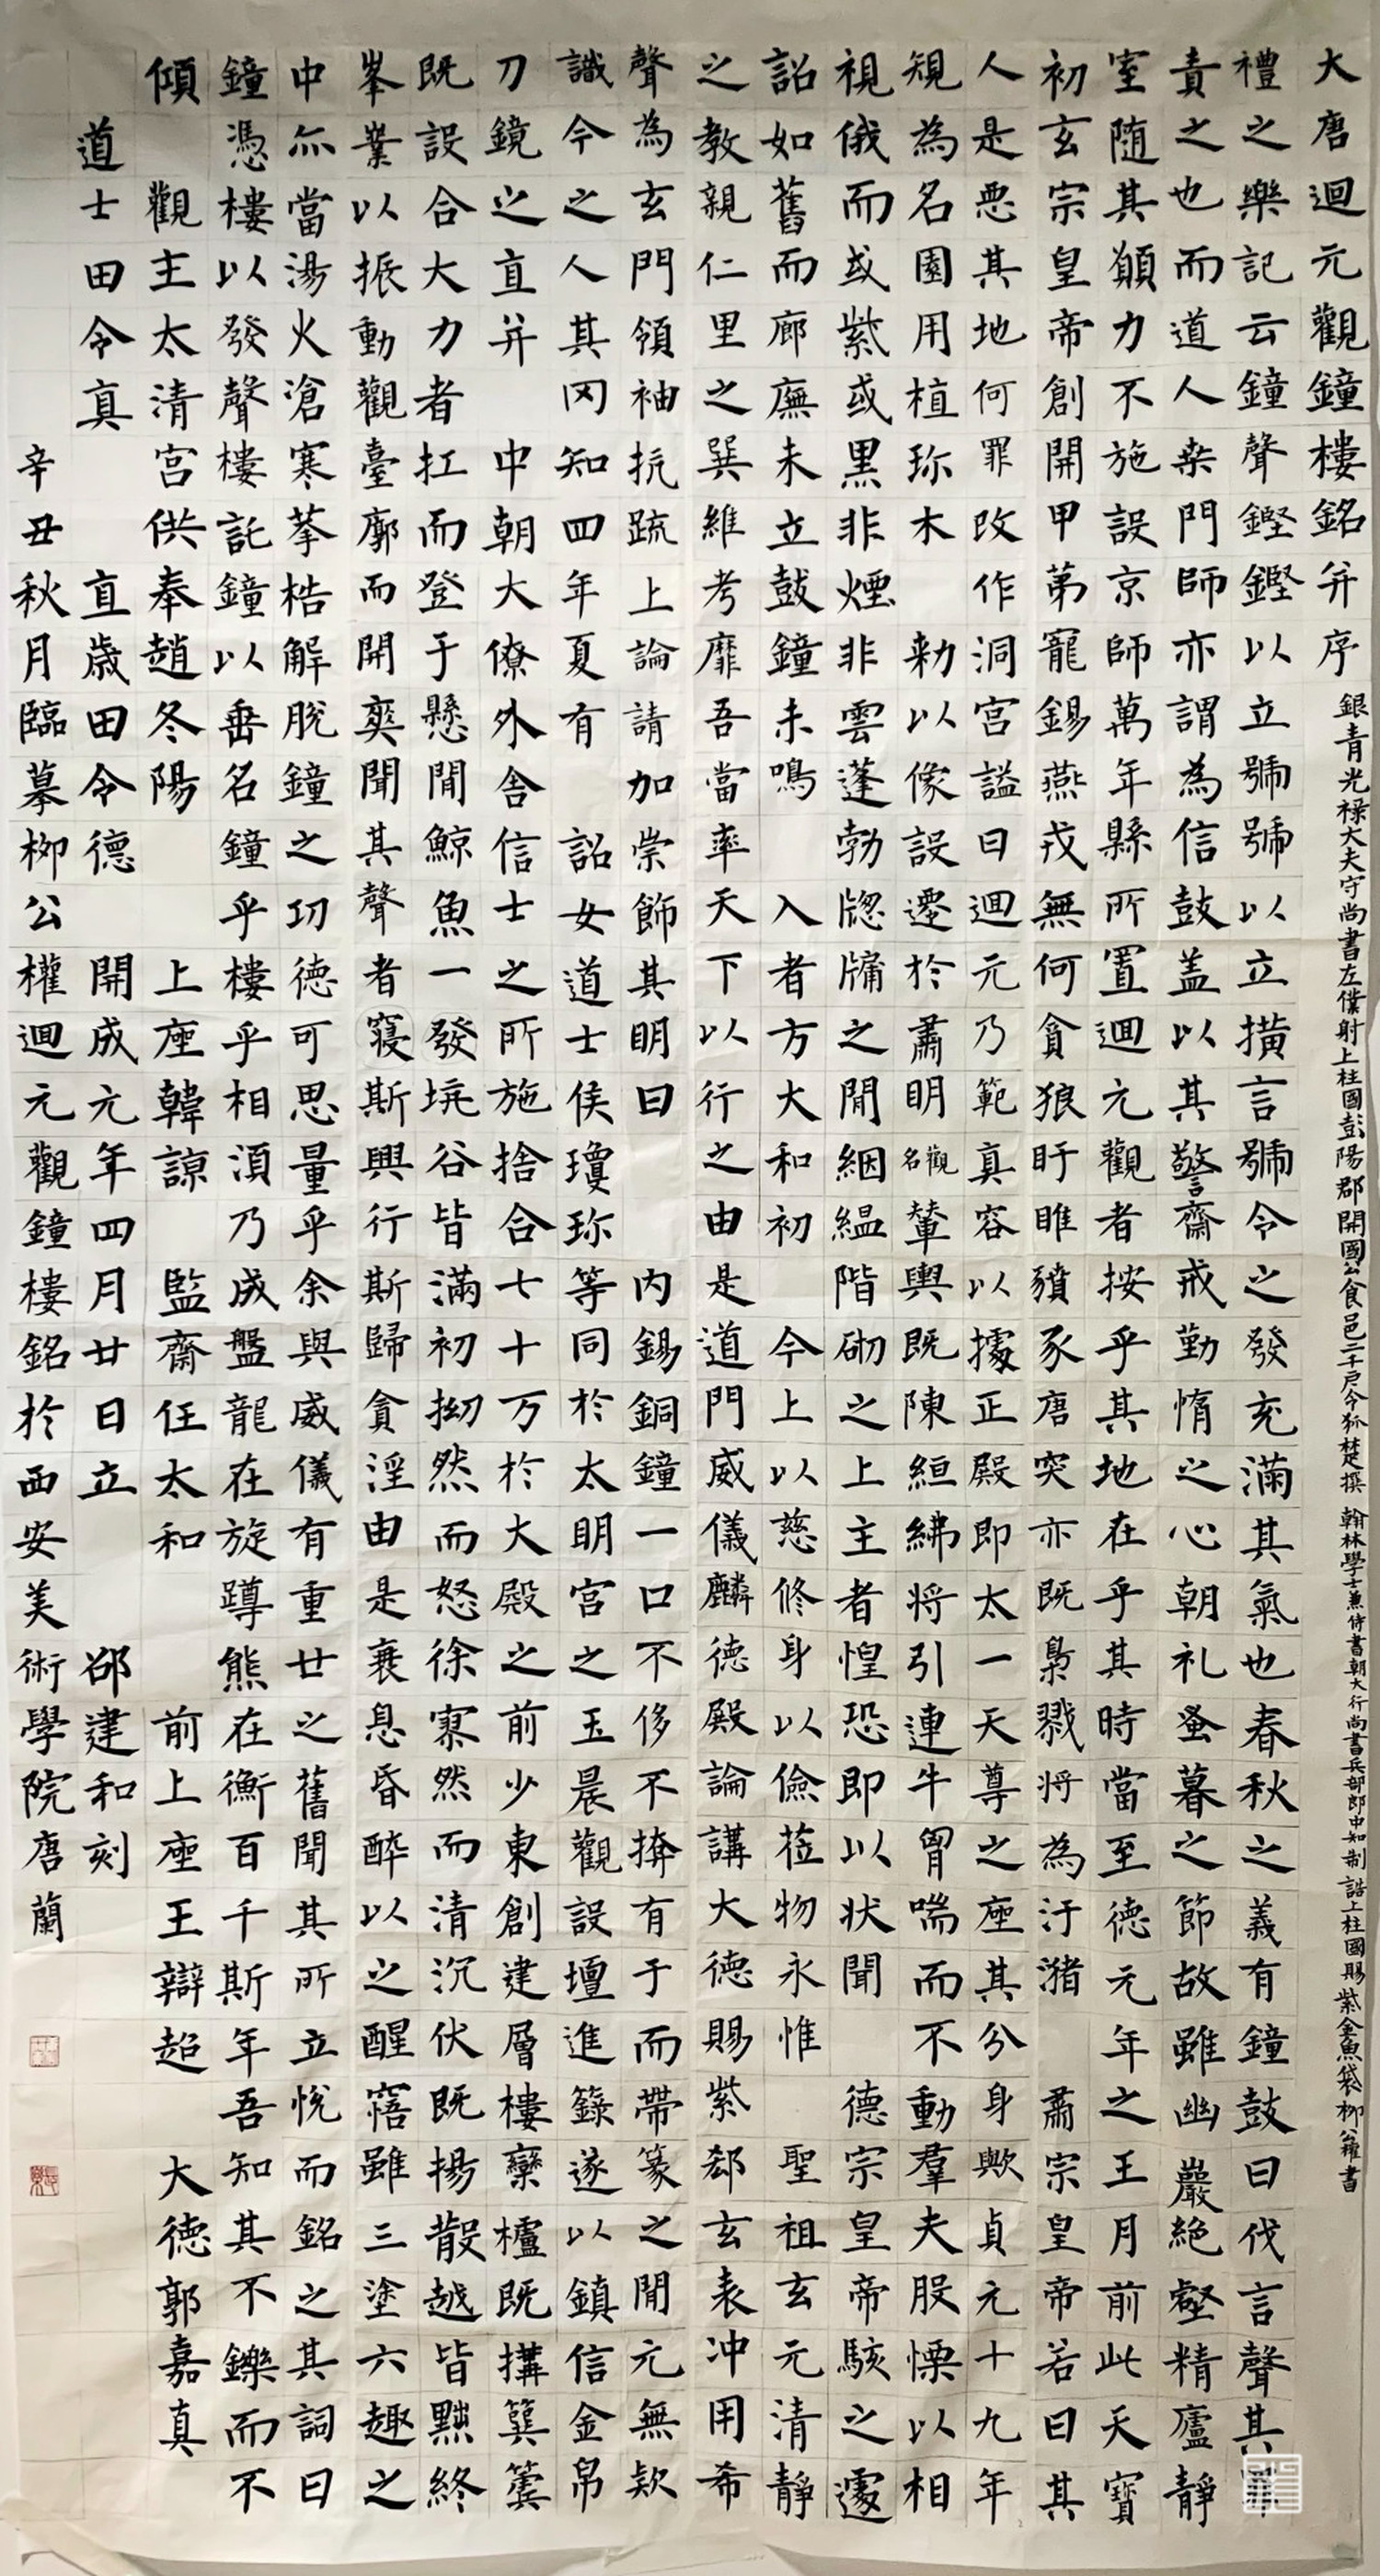 大唐迴元觀鐘樓銘并序 銀青光祿大夫守尚書左僕射上柱國彭陽郡開國公食邑二千戶令狐楚撰 翰林學士兼侍書朝大行尚書兵部郎中知制誥上柱國賜紫金魚袋柳公權書
禮之樂記云鐘聲鏗鏗以立號號以立撗言號令之發充滿其氣也春秋之義有鐘鼓曰伐言聲其
責之也而道人桒門師亦謂為信鼓盖以其警齋戒勤惰之心朝礼蚤暮之節故雖幽巖絕壑精廬靜
室随其願力不施設京師萬年縣所置迴元觀者按乎其地在乎其時當至德元年之王月前此天寶
初玄宗皇帝創開甲第寵錫燕戎無何貪狼盱睢豶豕唐突亦既梟戮將為汙瀦 肅宗皇帝若曰其
人是悪其地何罪改作洞宮謚曰迴元乃範真容以據正殿即太一天尊之座其分身歟貞元十九年
規為名園用植珎木 勑以像設遷於肅明名觀輦輿既陳絙紼將引連牛胷喘而不動羣夫股慄以相
視俄而或紫或黒非煙非雲蓬勃牕牖之閒絪緼階砌之上主者惶恐即以状聞 德宗皇帝駭之遽
詔如舊而廊廡未立鼓鐘未鳴 入者方大和初 今上以慈修身以儉莅物永惟 聖祖玄元清靜
之教親仁里之巽維考靡吾當率天下以行之由是道門威儀麟德殿論講大德賜紫郄玄表冲用希
聲為玄門領袖抗䟽上論請加崇飾其明日 内錫銅鐘一口不侈不㢲有于而帶篆之閒元無欵
識今之人其冈知四年夏有 詔女道士侯瓊珎等同於太明宮之玉晨觀設壇進籙遂以鎮信金帛
刀鏡之直并 中朝大僚外舍信士之所施捨合七十万於大殿之前少東創建層樓欒櫨既搆簨簴
既設合大力者扛而登于懸閒鯨魚一發坑谷皆滿初拗然而怒徐寥然而清沉伏既揚散越皆黜終
峯業以振動觀臺廓而開爽聞其聲者寝斯興行斯歸貪淫由是衰息昏醉以之醒寤雖三塗六趣之
中亦當湯火滄寒拲梏解脫鐘之㓛德可思量乎余與威儀有重廿之舊聞其所立悅而銘之其詞曰
鐘憑樓以發聲樓託鐘以垂名鐘乎樓乎相湏乃成盤龍在旋蹲熊在衡百千斯年吾知其不鑠而不
傾 觀主太清宮供奉趙冬陽 上座韓諒 監齋任太和 前上座王辯超 大德郭嘉真
道士田令真 直歳田令德 開成元年四月廿日立 邵建和刻
辛丑秋月臨摹柳公權迴元觀鐘樓銘於西安美術學院唐蘭